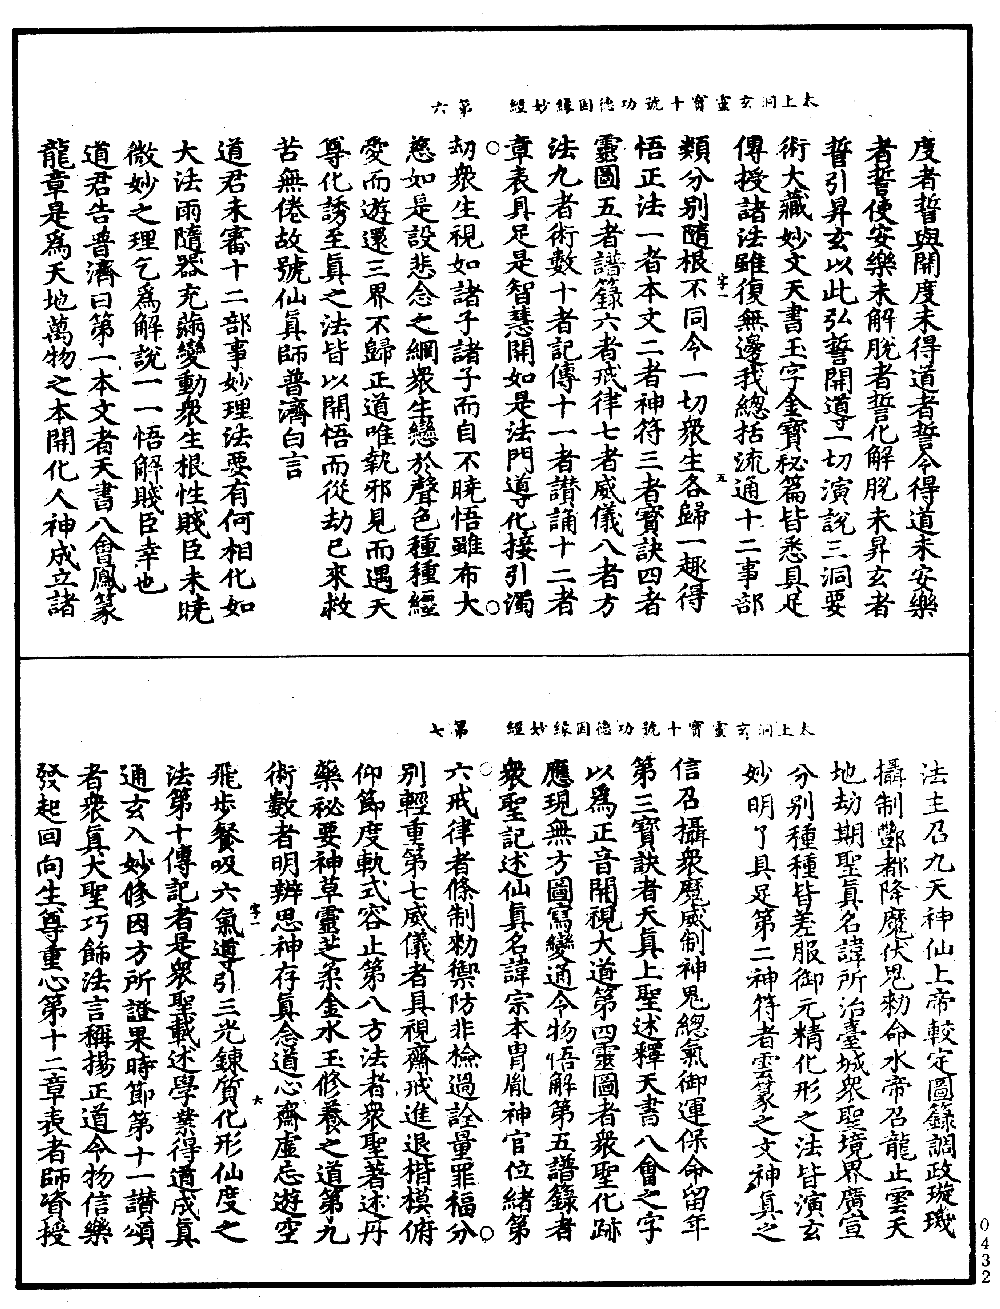 太上洞玄靈寶十號功德因緣妙經　第六
度者誓與開度未得道者誓令得道未安樂
者誓使安樂未解脫者誓化解脫未昇玄者
誓引昇玄以此弘誓開導一切演說三洞要
術大藏妙文天書玉字金寶秘篇皆悉具足
傳授諸法雖復無邊我總括流通十二事部
字一
五
類分別隨根不同今一切衆生各歸一趣得
悟正法一者本文二者神符三者寶訣四者
靈圖五者譜籙六者戒律七者威儀八者方
法九者術數十者記傳十一者讚誦十二者
章表具足是智慧開如是法門導化接引濁
劫衆生視如諸子諸子而自不曉悟雖布大
慈如是設悲念之網衆生戀於聲色種種經
愛而遊還三界不歸正道唯執邪見而遇天
尊化誘至真之法皆以開悟而從劫已來救
苦無倦故號仙真師普濟白言
道君未審十二部事妙理法要有何相化如
大法雨隨器充滿變動衆生根性賤臣未曉
微妙之理乞爲解說一一悟解賤臣幸也
道君告普濟曰第一本文者天書八會鳳篆
龍章是爲天地萬物之本開化人神成立諸
太上洞玄靈寶十號功德因緣妙經　第七
法主召九天神仙上帝較定圖籙調政璇璣
攝制酆都降魔伏鬼勑命水帝召龍止雲天
地劫期聖真名諱所治臺城衆聖境界廣宣
分別種種皆差服御元精化形之法皆演玄
妙明了具足第二神符者雲篆之文神真之
信召攝衆魔威制神鬼總氣御運保命留年
第三寶訣者天真上聖述釋天書八會之字
以爲正音開視大道第四靈圖者衆聖化跡
應現無方圖寫變通令物悟解第五譜籙者
衆聖記述仙真名諱宗本胄胤神官位緒第
六戒律者條制勑禦防非檢過詮量罪福分
別輕重第七威儀者具視齋戒進退楷模俯
仰節度軌式容止第八方法者衆聖著述丹
藥秘要神草靈芝柔金水玉修養之道第九
術數者明辨思神存真念道心齋虛忘遊空
字一
六
飛步餐吸六氣導引三光鍊質化形仙度之
法第十傳記者是衆聖載述學業得道成真
通玄入妙修因方所證果時節第十一讚頌
者衆真大聖巧飾法言稱揚正道令物信樂
發起回向生尊重心第十二章表者師資授
0432